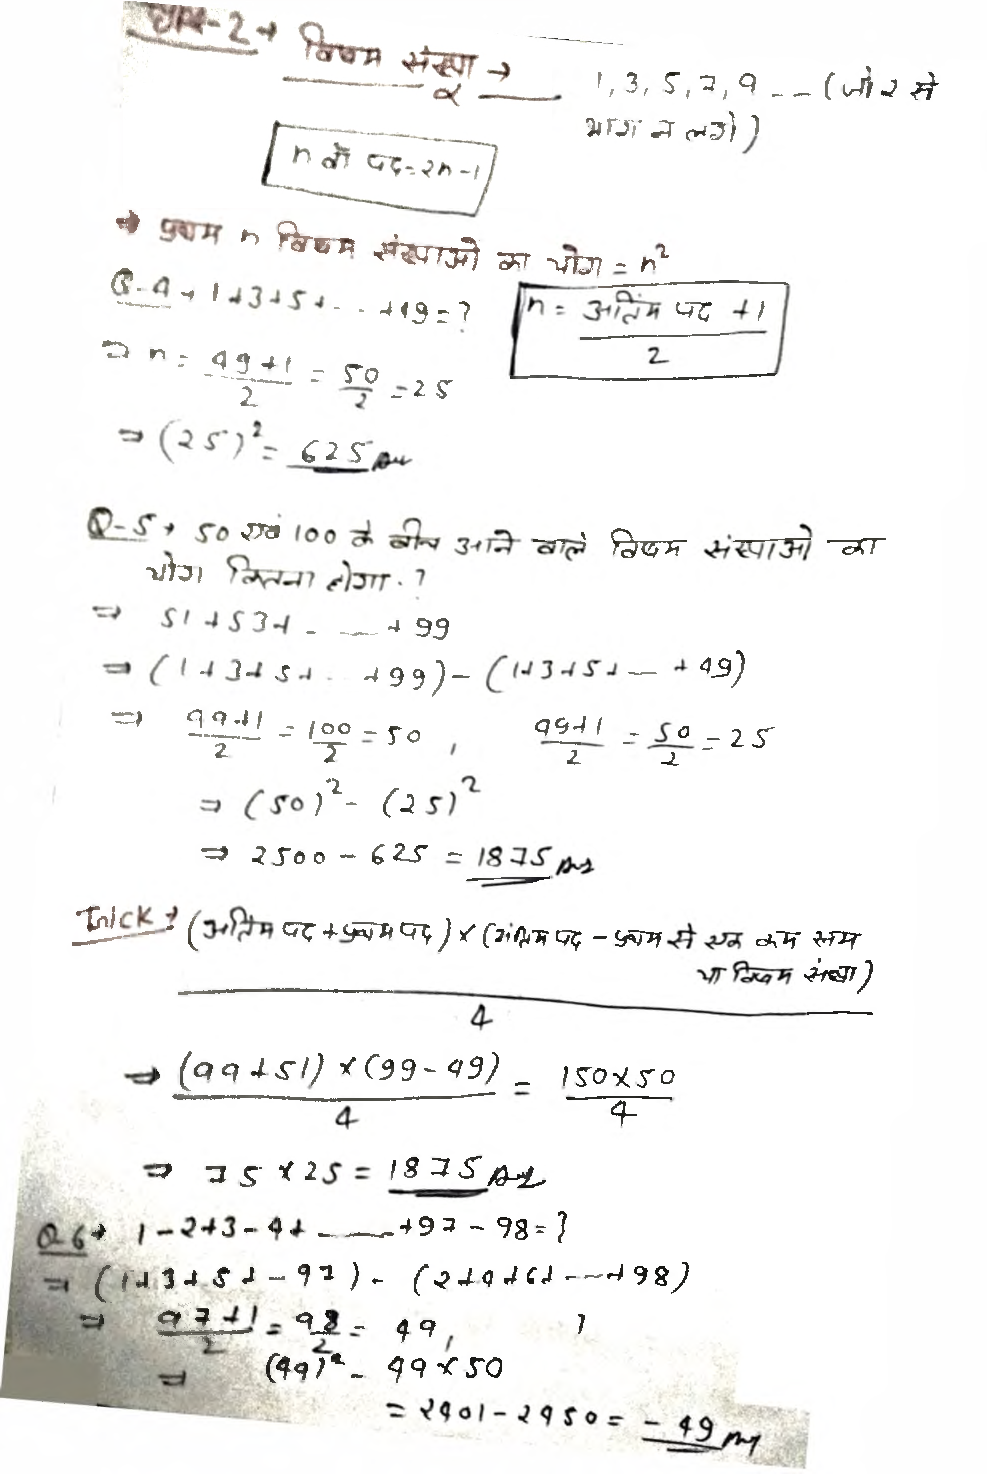 -2→ विषम संख्या →
1, 3, 5, 7, 9 -- (जो 2 से
भाग न लगे)
n वाँ पद = 2n-1
→ प्रथम n विषम संख्याओं का योग = n²
Q-4→ 1+3+5+ - - +49=?
n = अतिंम पद +1 / 2
⇒ n = 49+1/2 = 50/2 = 25
⇒ (25)² = 625 Ans
Q-5→ 50 एवं 100 के बीच आने वाले विषम संख्याओं का
योग कितना होगा.?
⇒ 51+53+ - — +99
⇒ (1+3+5+ - - +99) - (1+3+5+ — +49)
⇒ 99+1/2 = 100/2 = 50, 49+1/2 = 50/2 = 25
⇒ (50)² - (25)²
⇒ 2500 - 625 = 1875 Ans
Trick→ (अतिंम पद + प्रथम पद) × (अंतिम पद - प्रथम से एक कम सम
या विषम संख्या)
4
⇒ (99+51) × (99-49) / 4 = 150×50 / 4
⇒ 75 × 25 = 1875 Ans
Q 6→ 1-2+3-4+ --- +97-98=?
⇒ (1+3+5+ - 97) - (2+4+6+ --- +98)
⇒ 97+1/2 = 98/2 = 49,
⇒ (49)² - 49×50
= 2401-2450 = -49 Ans